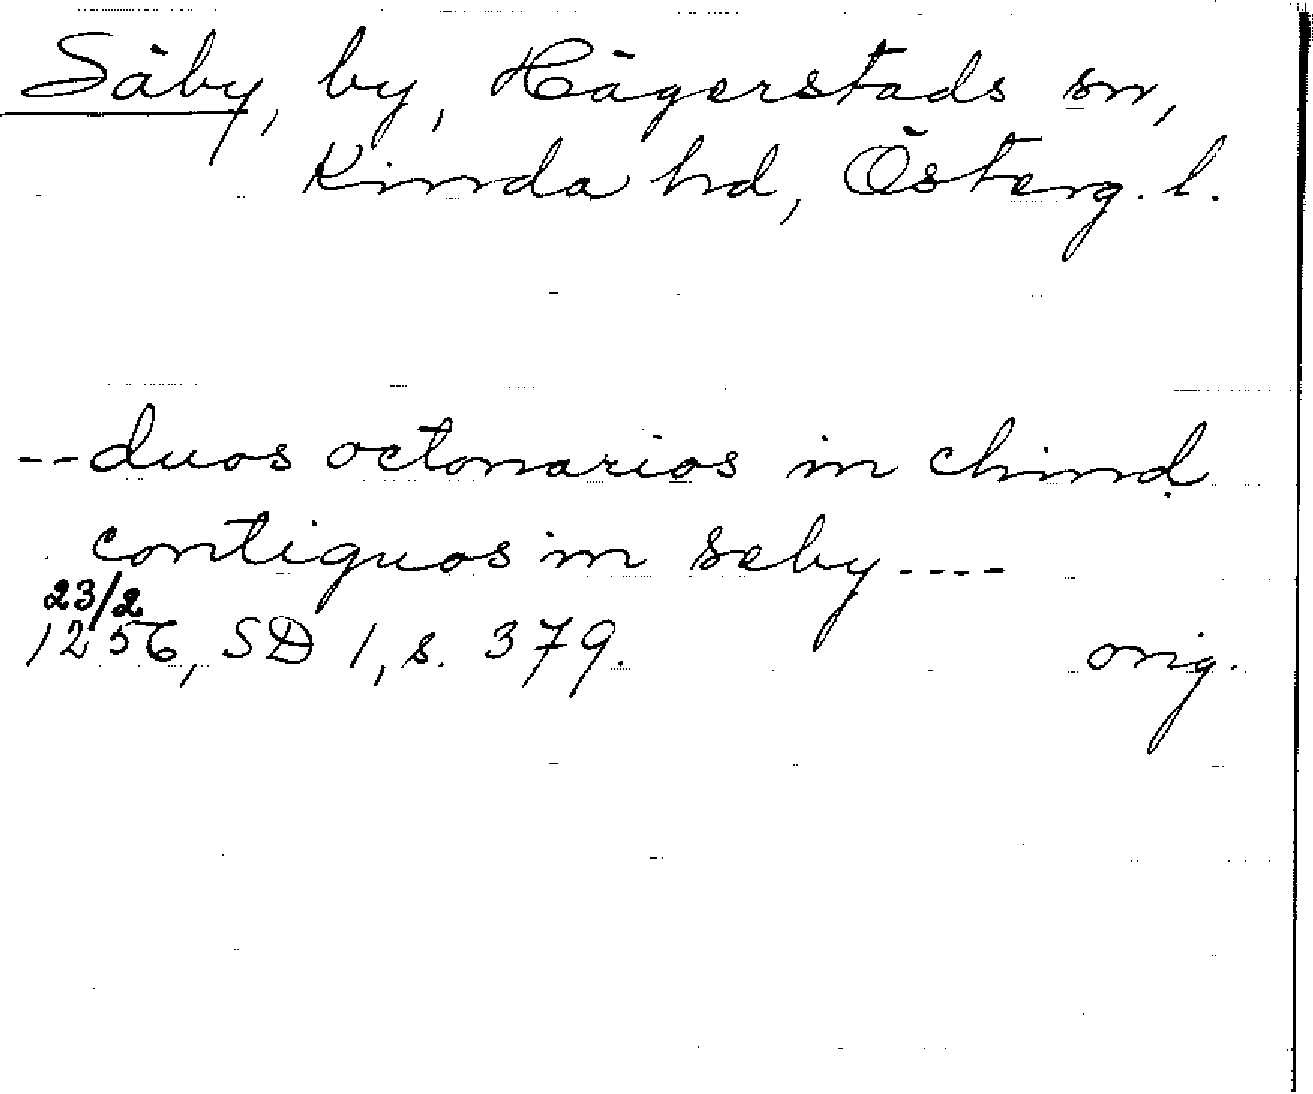 Säby, by, Hägerstads sn,
Kinda hd, Österg. l.
--duos octonarios in chind
contiguos in seby----
23/2
1256, SD 1, s. 379. orig.